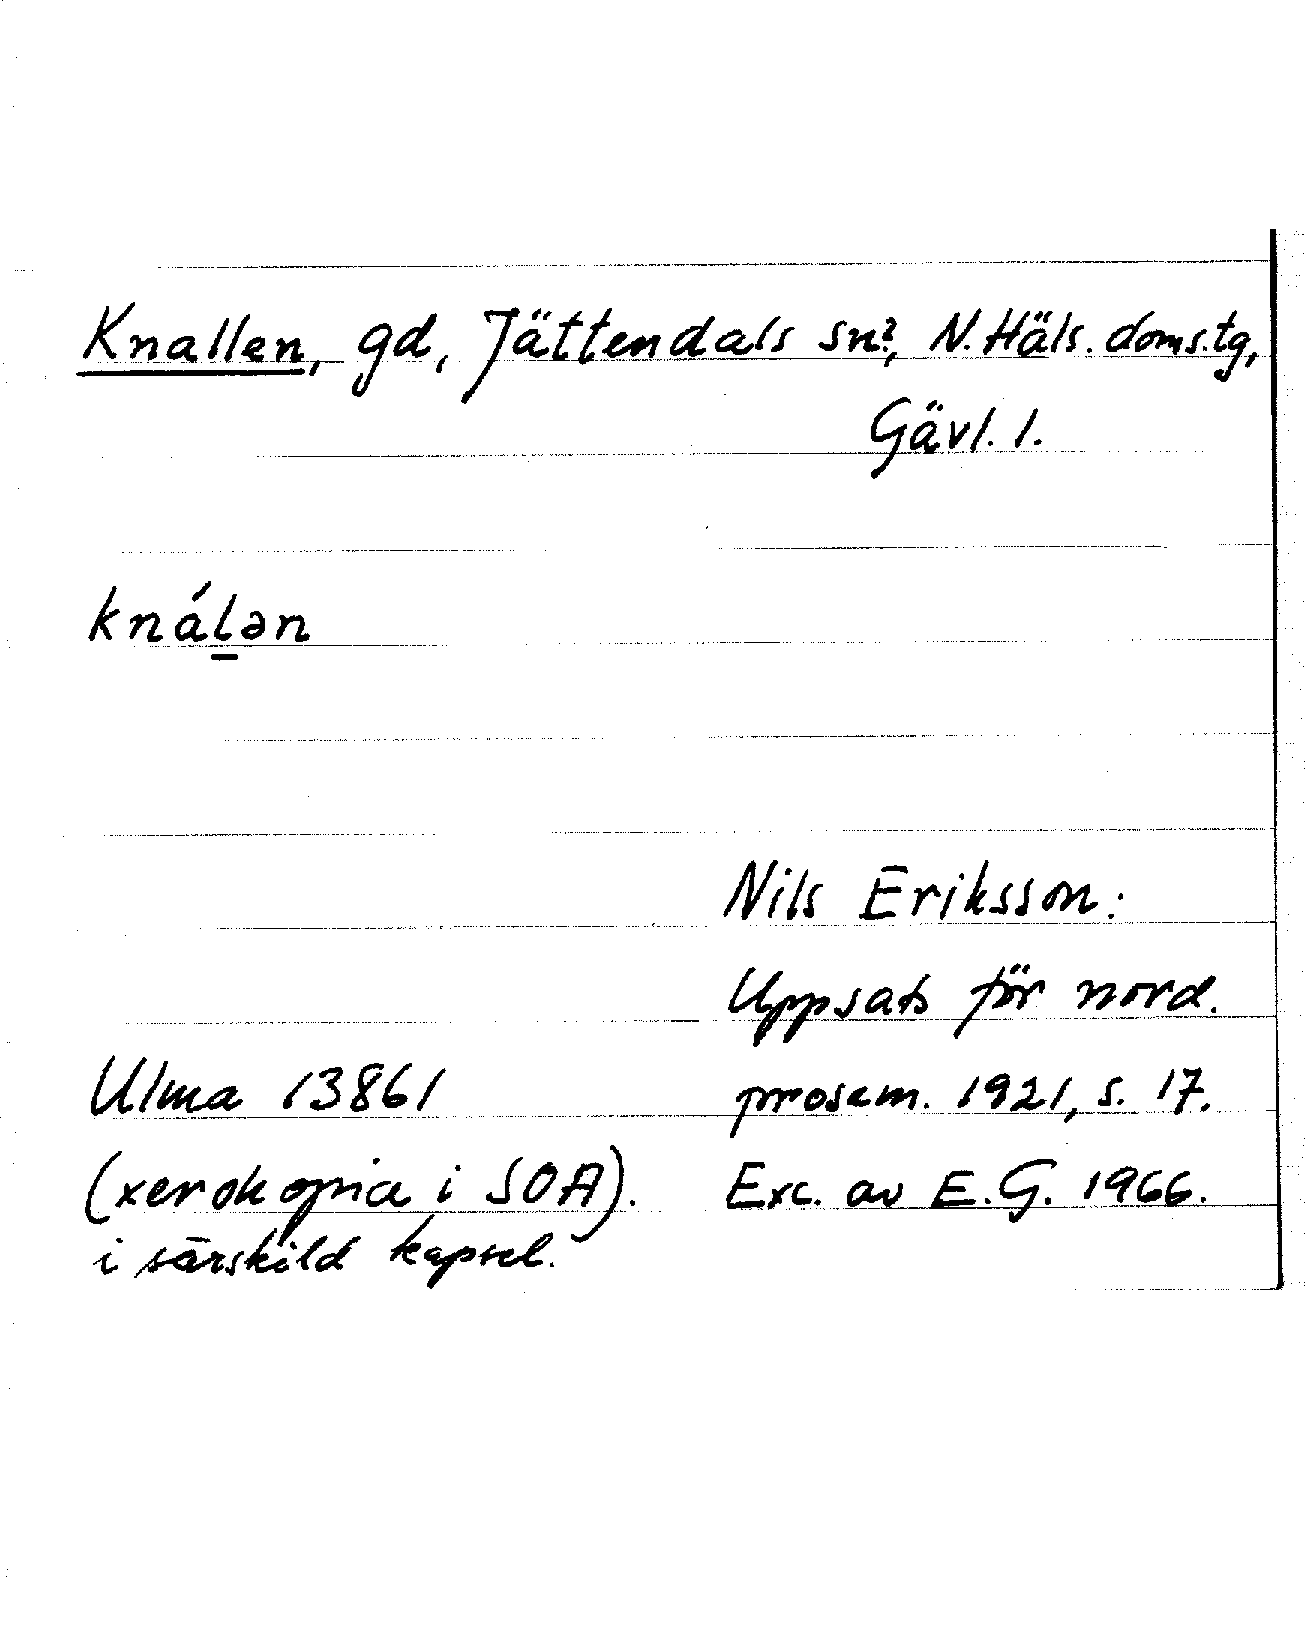 Knallen, gd, Jättendals sn?, N. Häls. doms.tg,
Gävl. l.
knál̠ən
Nils Eriksson:
Uppsats för nord.
Ulma 13861 prosem. 1921, s. 17.
(xerokopia i SOA). Exc. av E.G. 1966.
i särskild kapsel.